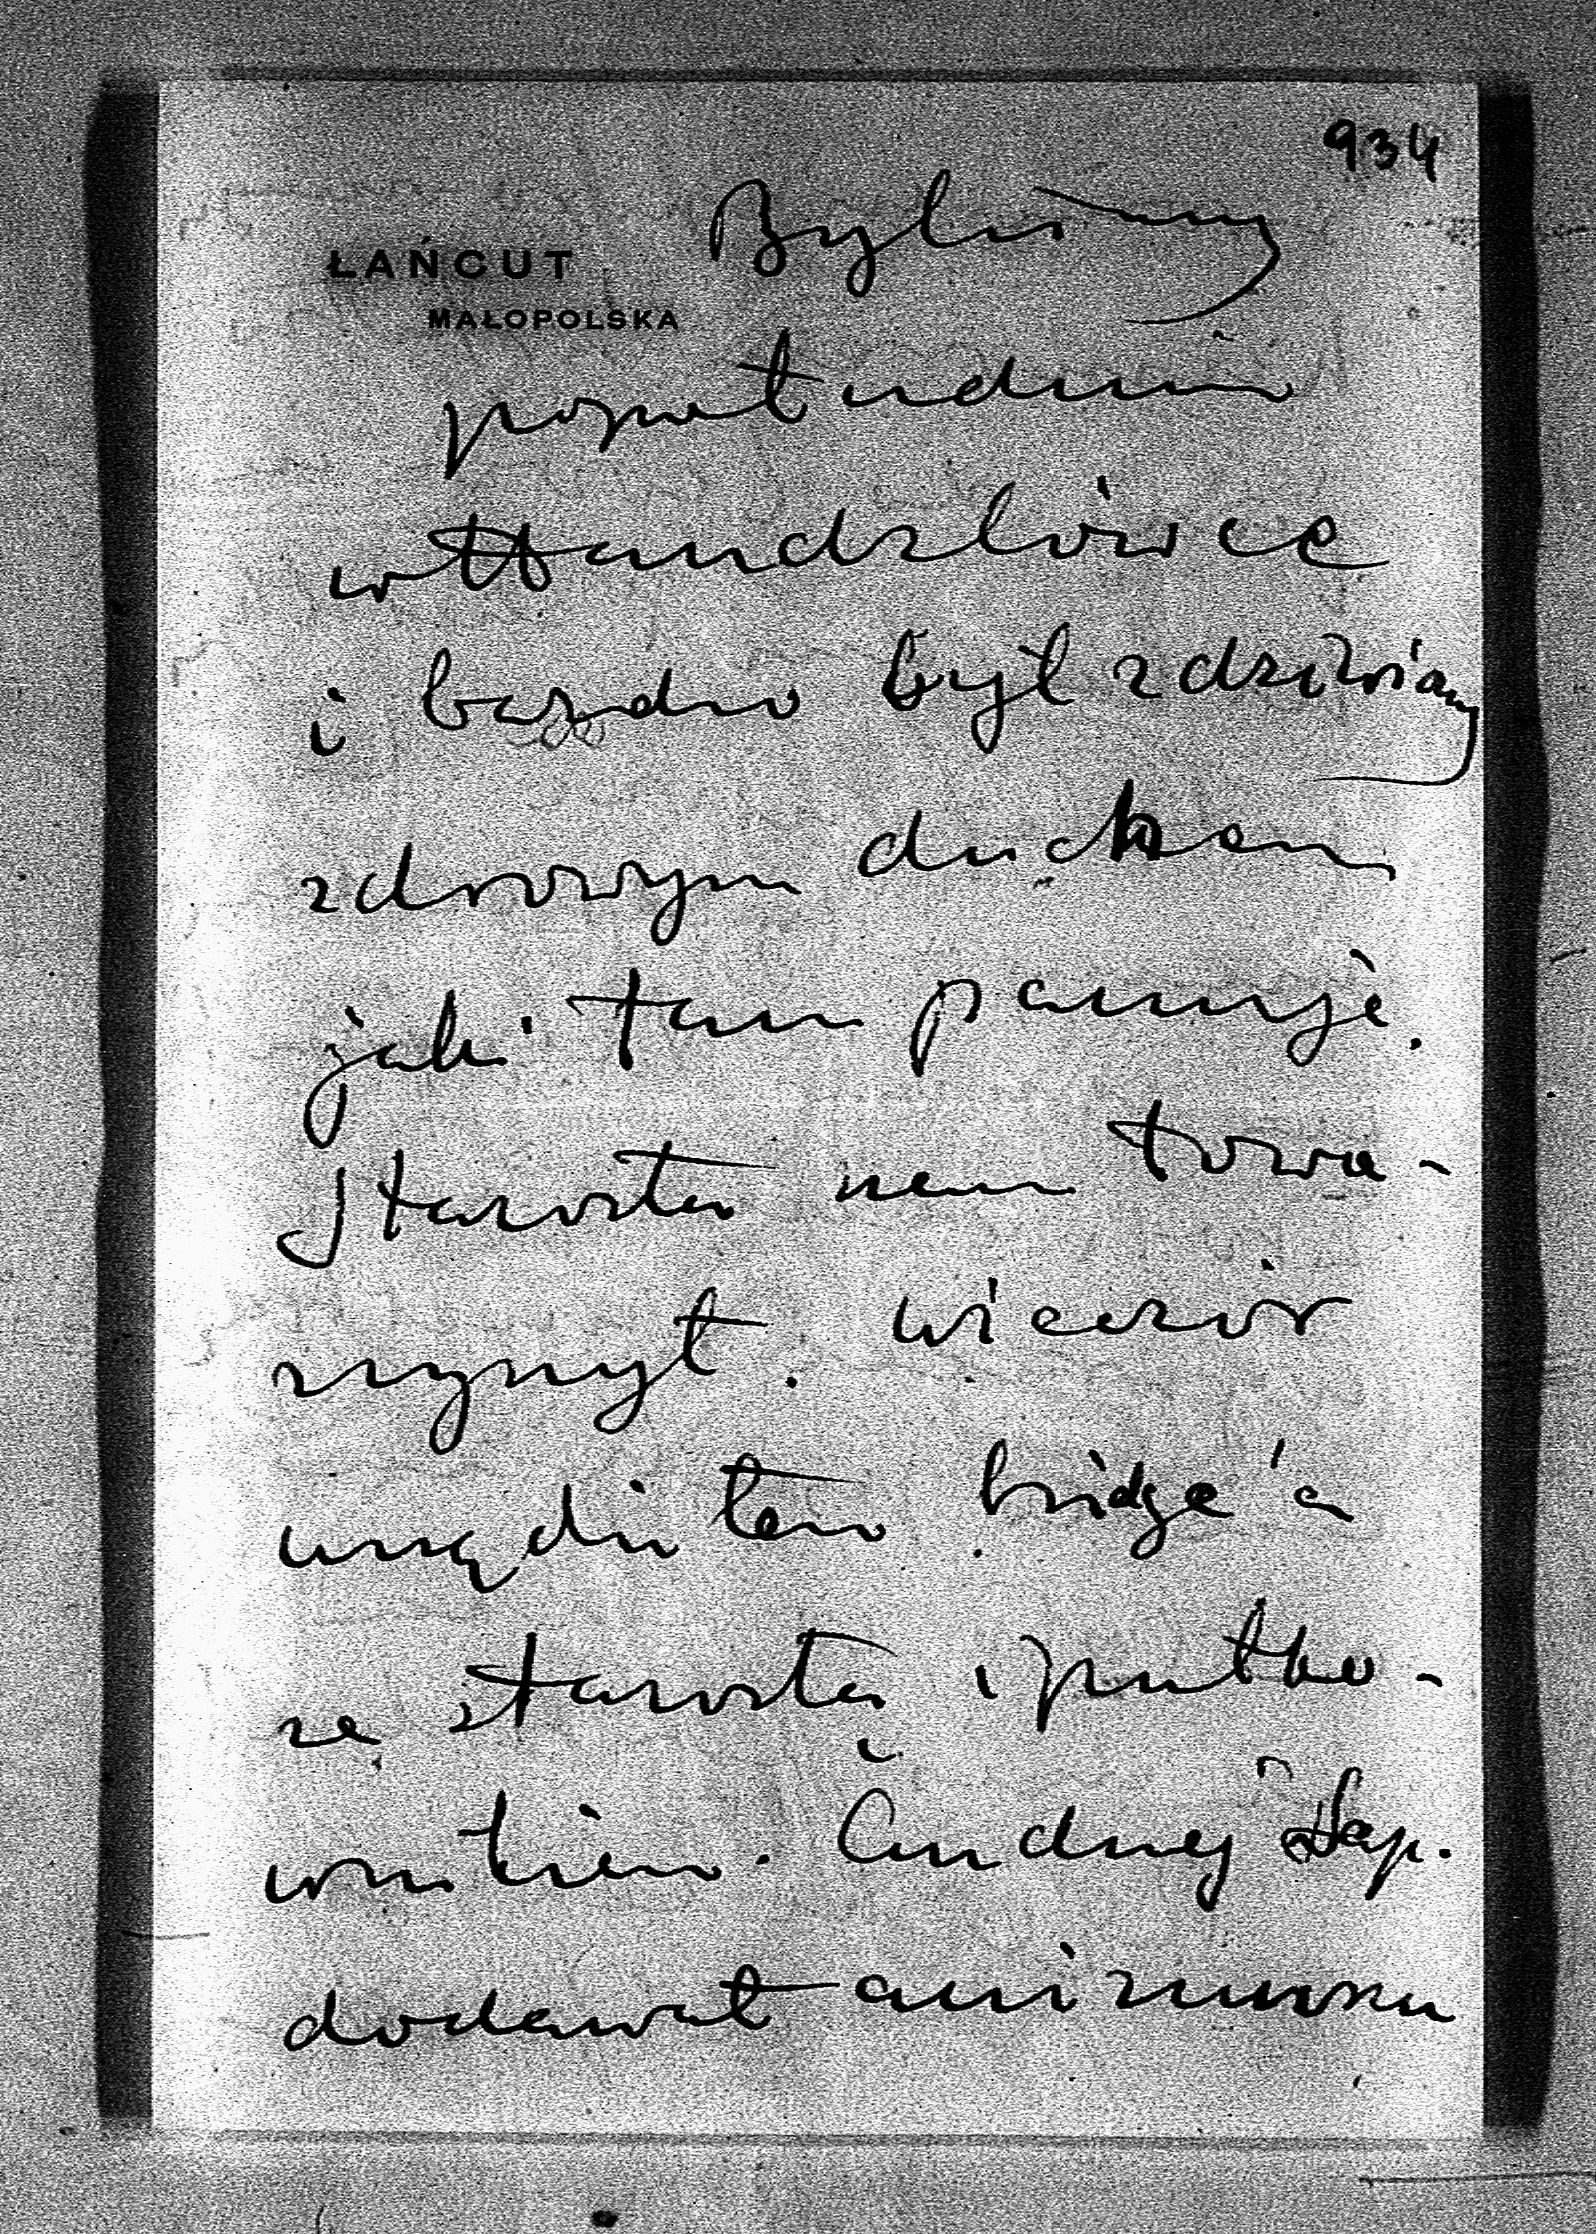 934
ŁAŃCUT
MAŁOPOLSKA
Byliśmy
popołudniu
w Handzlówce
i bardzo był zdziwiany
zdrowym duchem
jaki tam panuje.
Starosta nam towa-
rzyszył. wieczór
urządziłem bridge'a
ze starostą i pułko-
wnikiem. Andrzej
dodawał animuszu